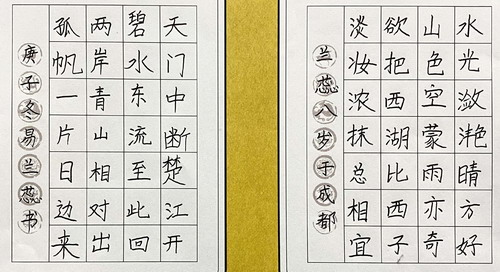 水光潋滟晴方好
山色空蒙雨亦奇
欲把西湖比西子
淡妆浓抹总相宜
兰蕊八岁于成都
天门中断楚江开
碧水东流至此回
两岸青山相对出
孤帆一片日边来
庚子冬易兰蕊书